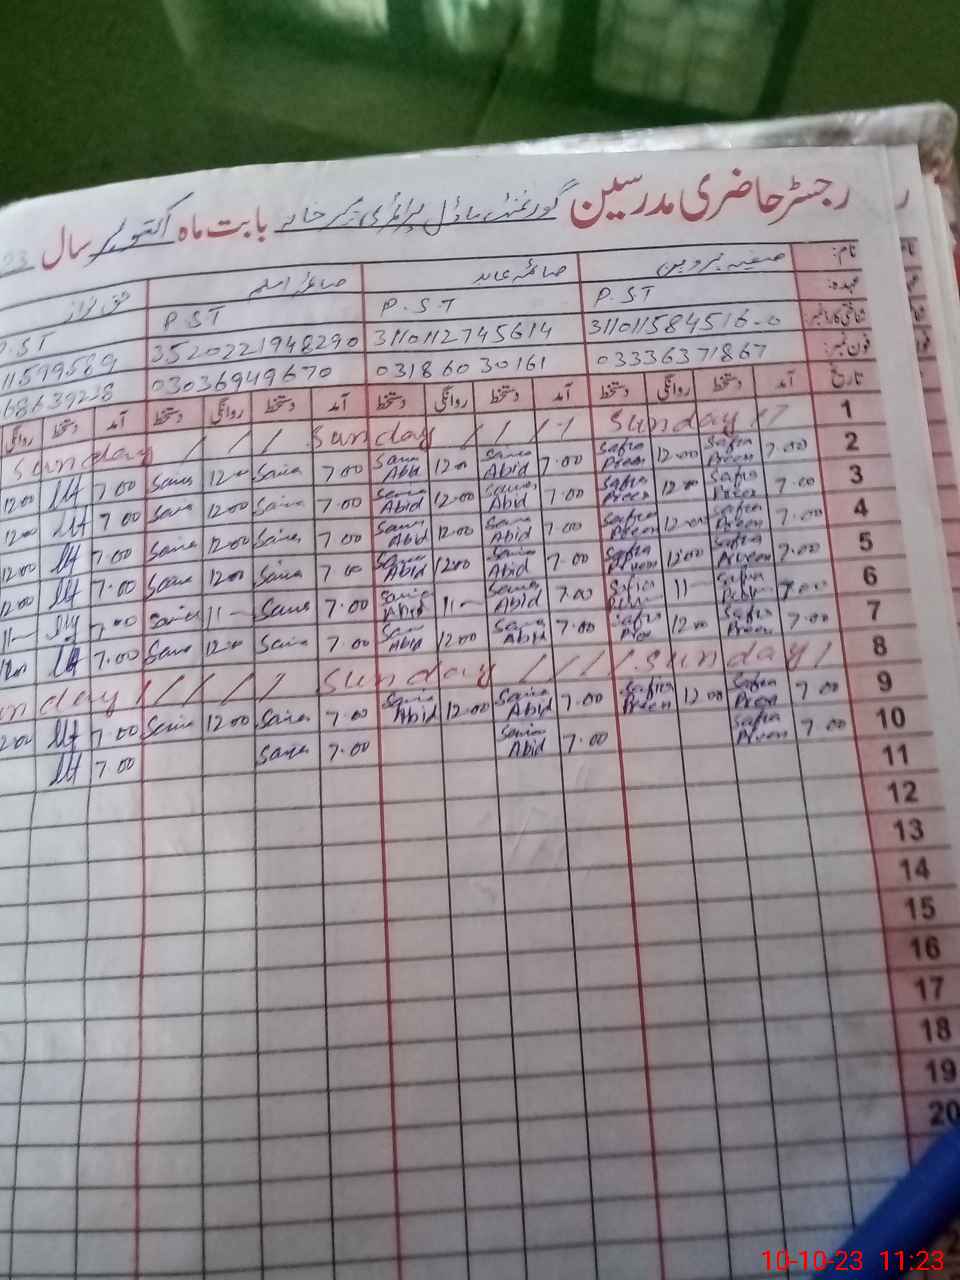 رجسٹر حاضری مدرسین گورنمنٹ ماڈل پرائمری بابت ماہ اکتوبر سال 23
نام: صفیہ پروین صائمہ عابد صائمہ اسلم
عہدہ: P.ST P.S.T P.ST P.ST
شناختی کارڈ نمبر 3110112745614 3520221948290 11599589
فون نمبر: 03336371867 03186030161 03036949670 68639228
تاریخ آمد دستخط روانگی دستخط آمد دستخط روانگی دستخط آمد دستخط روانگی دستخط آمد دستخط روانگی
1 Sunday / / / / Sunday / / / Sunday
2 7.00 Safia Preen 12.00 Safia Preen 7.00 Saima Abid 12.00 Saima Abid 7.00 Saira 12.00 Saira 7.00 12.00
3 7.00 Safia Preen 12.00 Safia Preen 7.00 Saima Abid 12.00 Saima Abid 7.00 Saira 12.00 Saira 7.00 12.00
4 7.00 Safia Preen 12.00 Safia Preen 7.00 Saima Abid 12.00 Saima Abid 7.00 Saira 12.00 Saira 7.00 12.00
5 7.00 Safia Prveen 12.00 Safia Prveen 7.00 Saima Abid 12.00 Saima Abid 7.00 Saira 12.00 Saira 7.00 12.00
6 7.00 Safia 11- Safia 7.00 Saima Abid 11- Saima Abid 7.00 Saira 11- Saira 7.00 11-
7 7.00 Safia Preen 12.00 Safia Pree 7.00 Saima Abid 12.00 Saima Abid 7.00 Saira 12.00 Saira 7.00 12.00
8 Sunday / / / / Sunday / / / / / nday
9 7.00 Safia Preen 12.00 Safia Preen 7.00 Saima Abid 12.00 Saima Abid 7.00 Saira 12.00 Saira 7.00 12.00
10 7.00 Safia Preen 7.00 Saima Abid 7.00 Saira 7.00
11
12
13
14
15
16
17
18
19
20
10-10-23 11:23